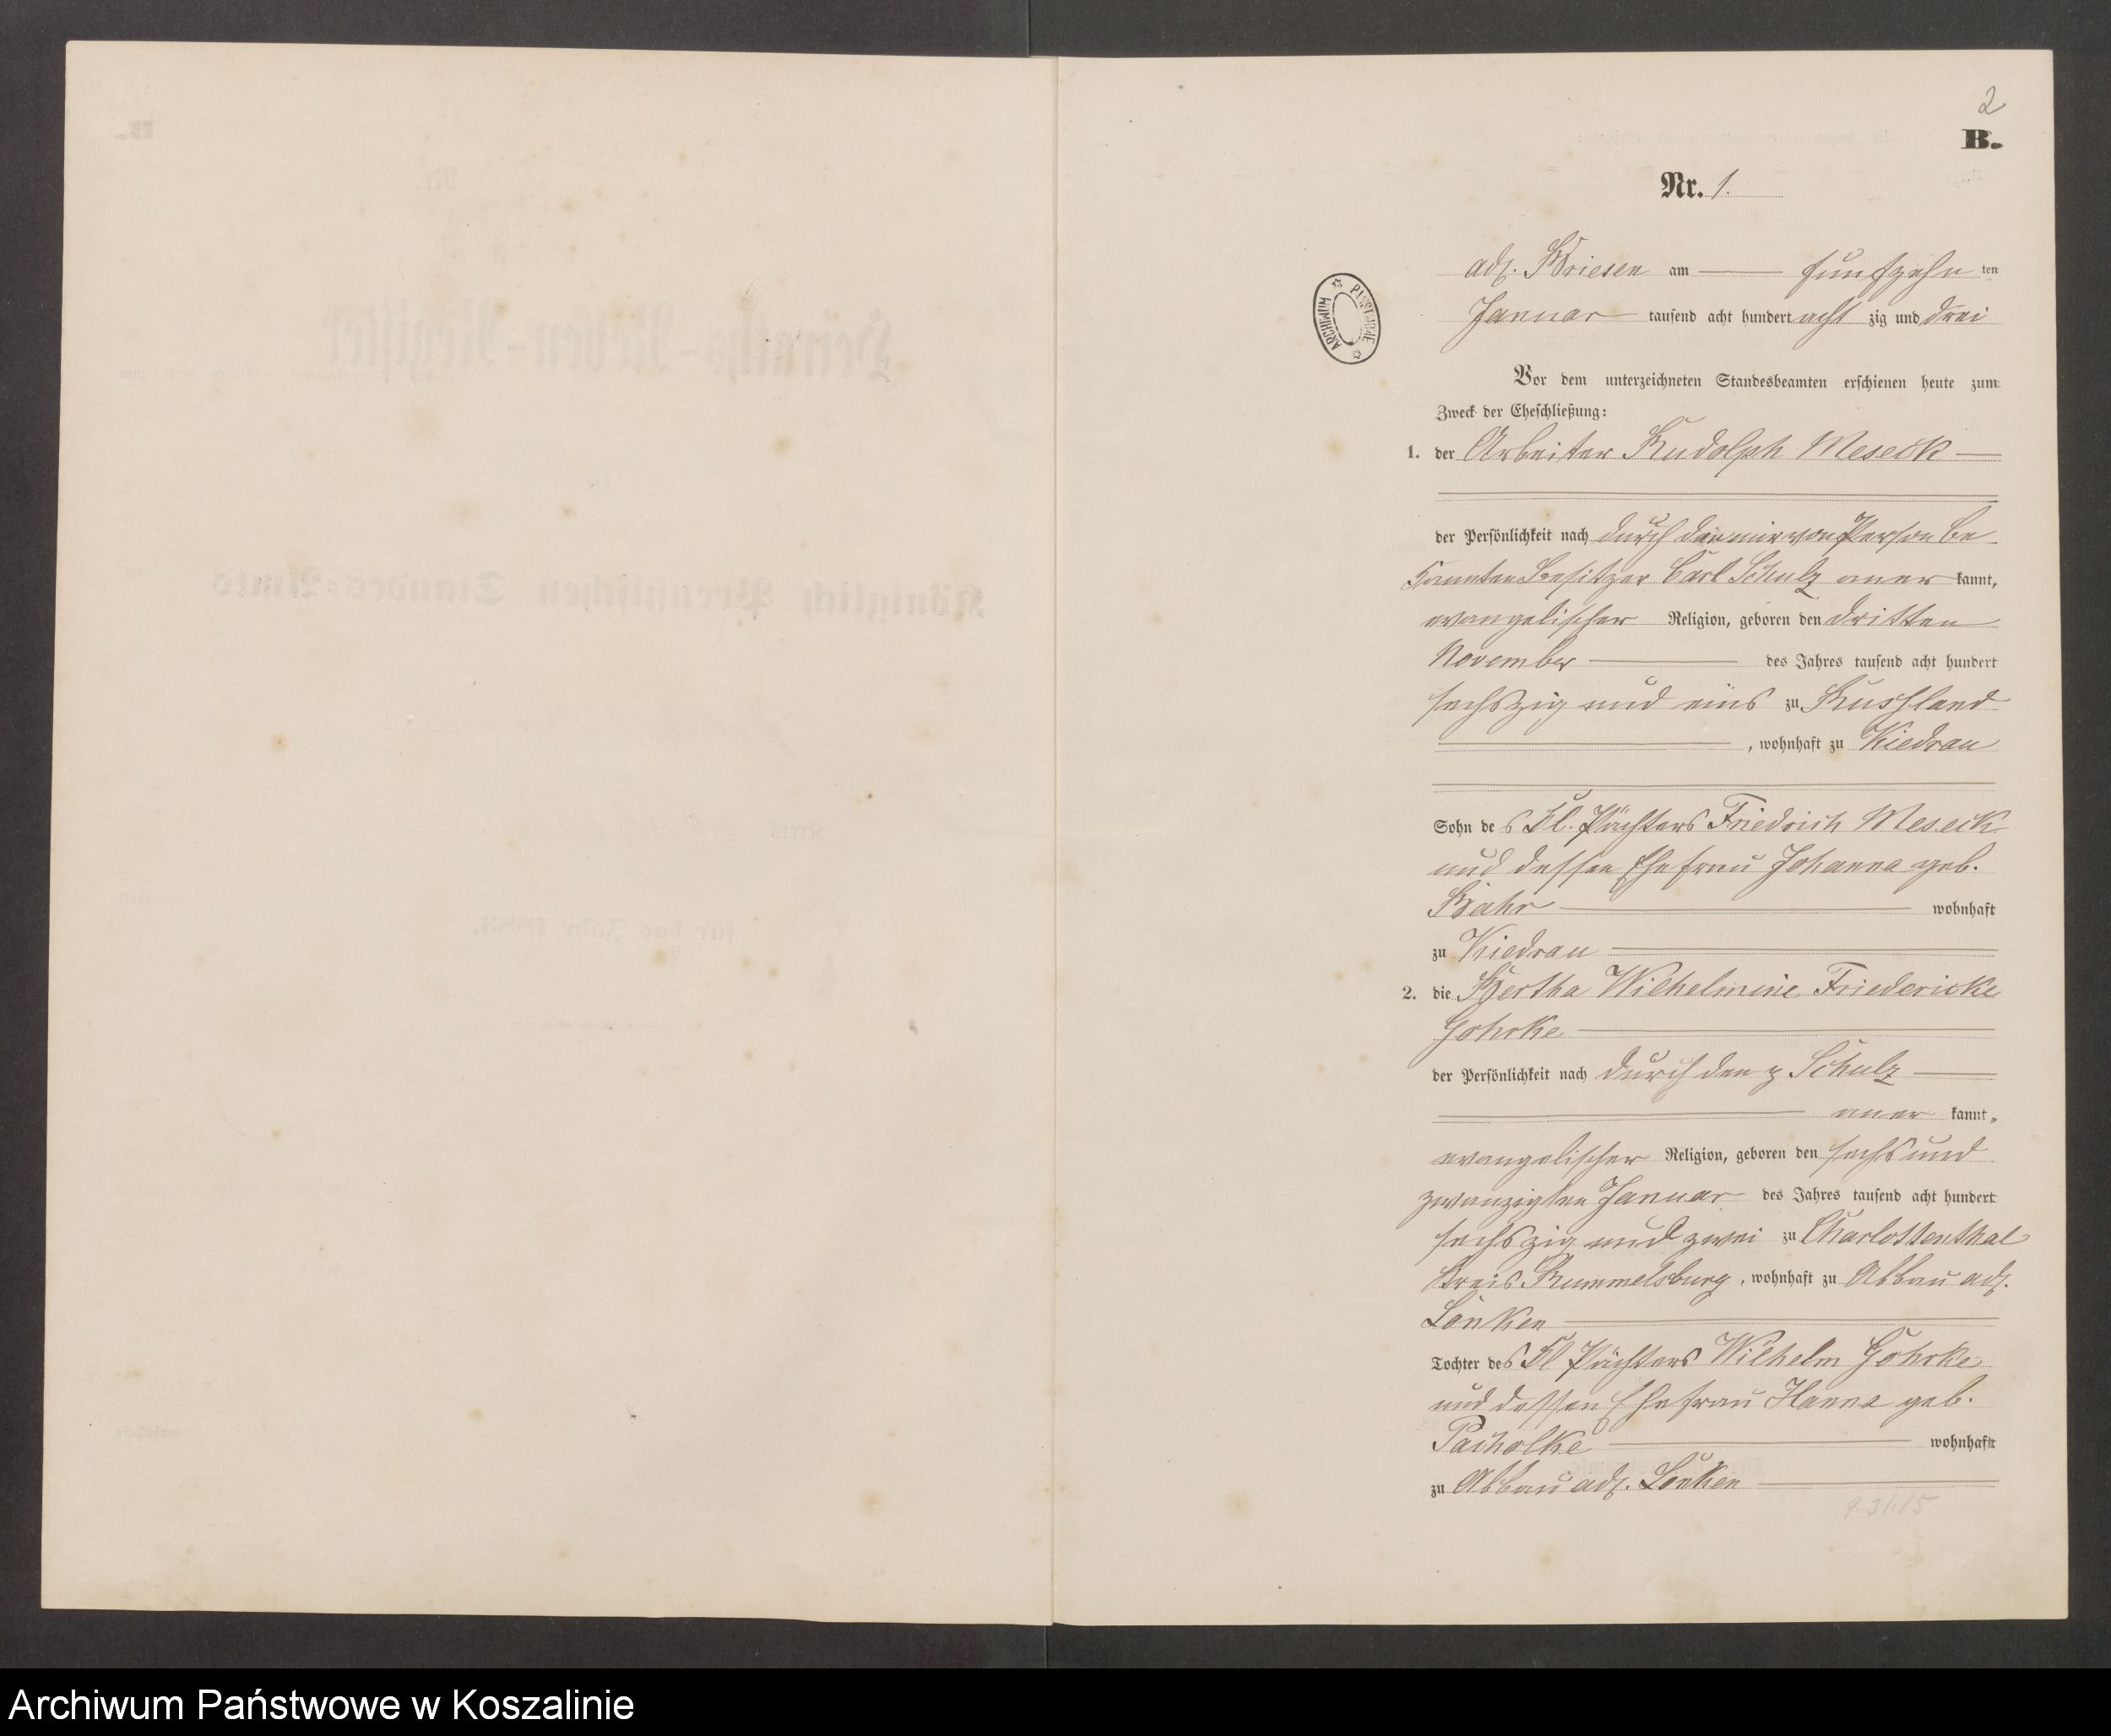 2
B.
Nr. 1.
adl. Briesen am fünfzehn ten
Januar tausend acht hundert acht zig und drei
ARCHIWUM PAŃSTWOWE
Vor dem unterzeichneten Standesbeamten erschienen heute zum
Zweck der Eheschließung:
1. der Arbeiter Rudolph Meseck
der Persönlichkeit nach durch den mir von Person be
kannten Besitzer Carl Schulz aner kannt,
evangelischer Religion, geboren den dritten
November des Jahres tausend acht hundert
sechszig und eins zu Russland
, wohnhaft zu Kiedrau
Sohn de s Kl. Pächters Friedrich Meseck
und dessen Ehefrau Johanna geb.
Bahr wohnhaft
zu Kiedrau
2. die Bertha Wilhelmine Friedericke
Gohrke
der Persönlichkeit nach durch den Schulz
aner kannt,
evangelischer Religion, geboren den sechs und
zwanzigsten Januar des Jahres tausend acht hundert
sechszig und zwei zu Charlottenthal
Kreis Rummelsburg, wohnhaft zu Abbau adl.
Lonken
Tochter des Kl Pächters Wilhelm Gohrke
und dessen Ehefrau Hanna geb.
Pacholke wohnhaft
zu Abbau adl. Lonken
9.31.15
Heiraths-Neben-Register
Königlich Preußischen Standes-Amts
Kreis
für das Jahr 1883.
Archiwum Państwowe w Koszalinie